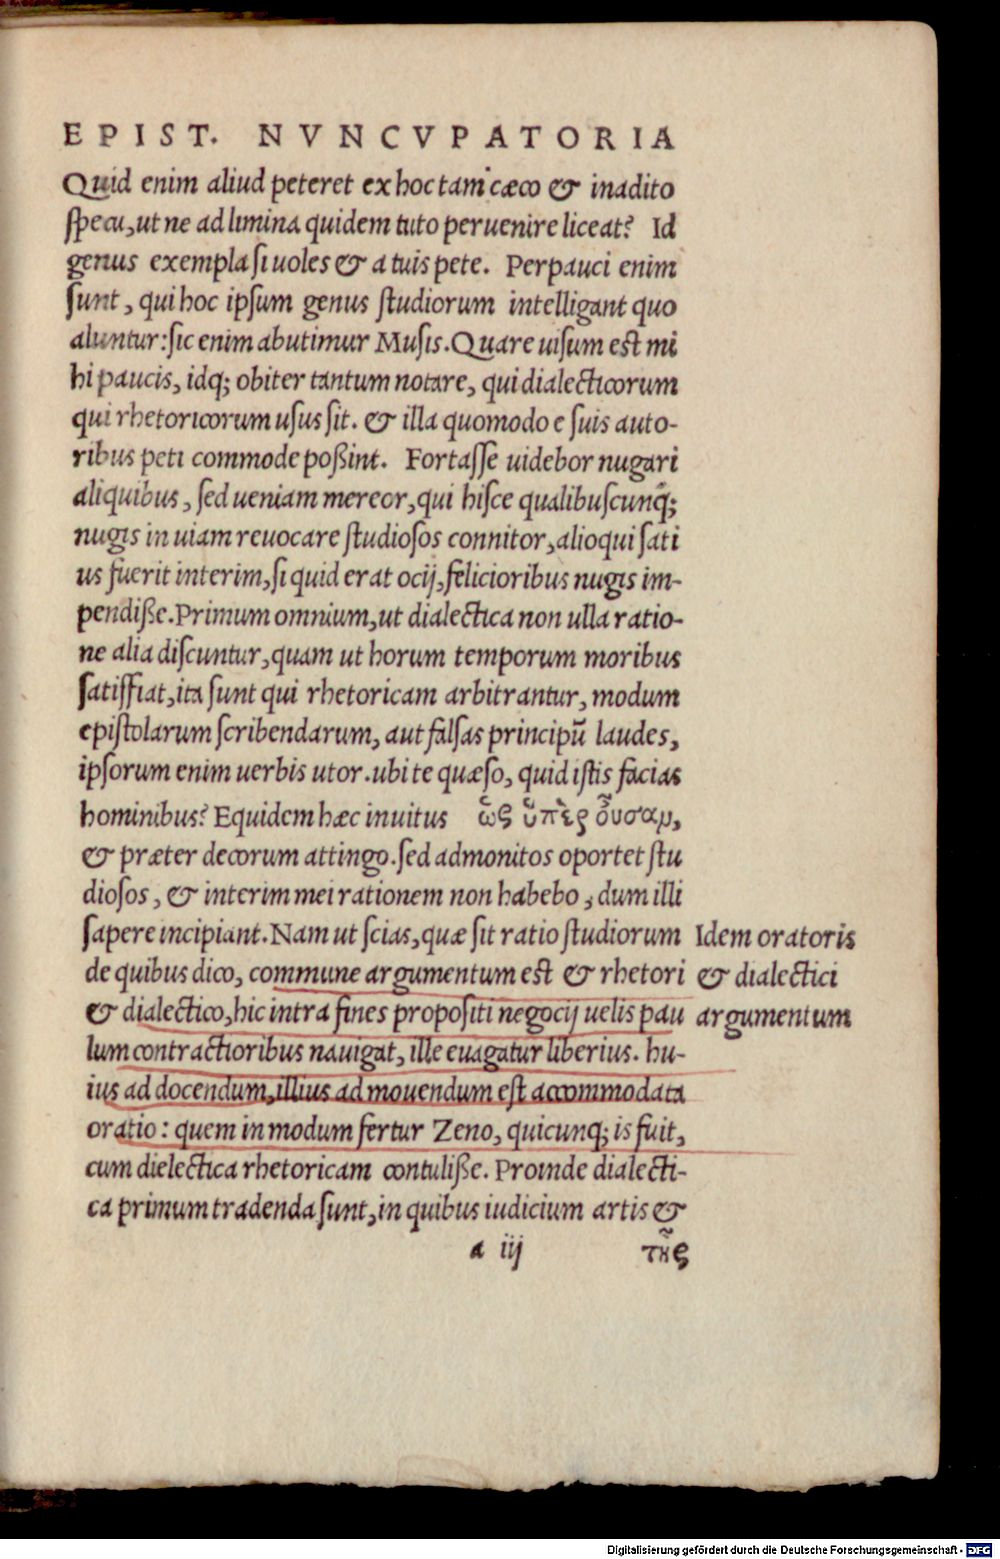 EPIST. NVNCVPATORIA
Quid enim aliud peteret ex hoc tam cæco & inadito
specu, ut ne ad limina quidem tuto peruenire liceat? Id
genus exempla si uoles & a tuis pete. Perpauci enim
sunt, qui hoc ipsum genus studiorum intelligant quo
aluntur: sic enim abutimur Musis. Quare uisum est mi
hi paucis, idq; obiter tantum notare, qui dialecticorum
qui rhetoricorum usus sit. & illa quomodo e suis auto-
ribus peti commode poßint. Fortasse uidebor nugari
aliquibus, sed ueniam mereor, qui hisce qualibuscunq̃;
nugis in uiam reuocare studiosos connitor, alioqui sati
us fuerit interim, si quid erat ocij, felicioribus nugis im-
pendiße. Primum omnium, ut dialectica non ulla ratio-
ne alia discuntur, quam ut horum temporum moribus
satisfiat, ita sunt qui rhetoricam arbitrantur, modum
epistolarum scribendarum, aut falsas principũ laudes,
ipsorum enim uerbis utor. ubi te quæso, quid istis facias
hominibus? Equidem hæc inuitus ὥς ὑπὲρ οὖσαν,
& præter decorum attingo. sed admonitos oportet stu
diosos, & interim mei rationem non habebo, dum illi
sapere incipiant. Nam ut scias, quæ sit ratio studiorum
de quibus dico, commune argumentum est & rhetori
& dialectico, hic intra fines propositi negocij uelis pau
lum contractioribus nauigat, ille euagatur liberius. hu-
ius ad docendum, illius ad mouendum est accommodata
oratio: quem in modum fertur Zeno, quicunq; is fuit,
cum dielectica rhetoricam contuliße. Proinde dialecti-
ca primum tradenda sunt, in quibus iudicium artis &
a iij τῆς
Idem oratoris
& dialectici
argumentum
Digitalisierung gefördert durch die Deutsche Forschungsgemeinschaft - DFG